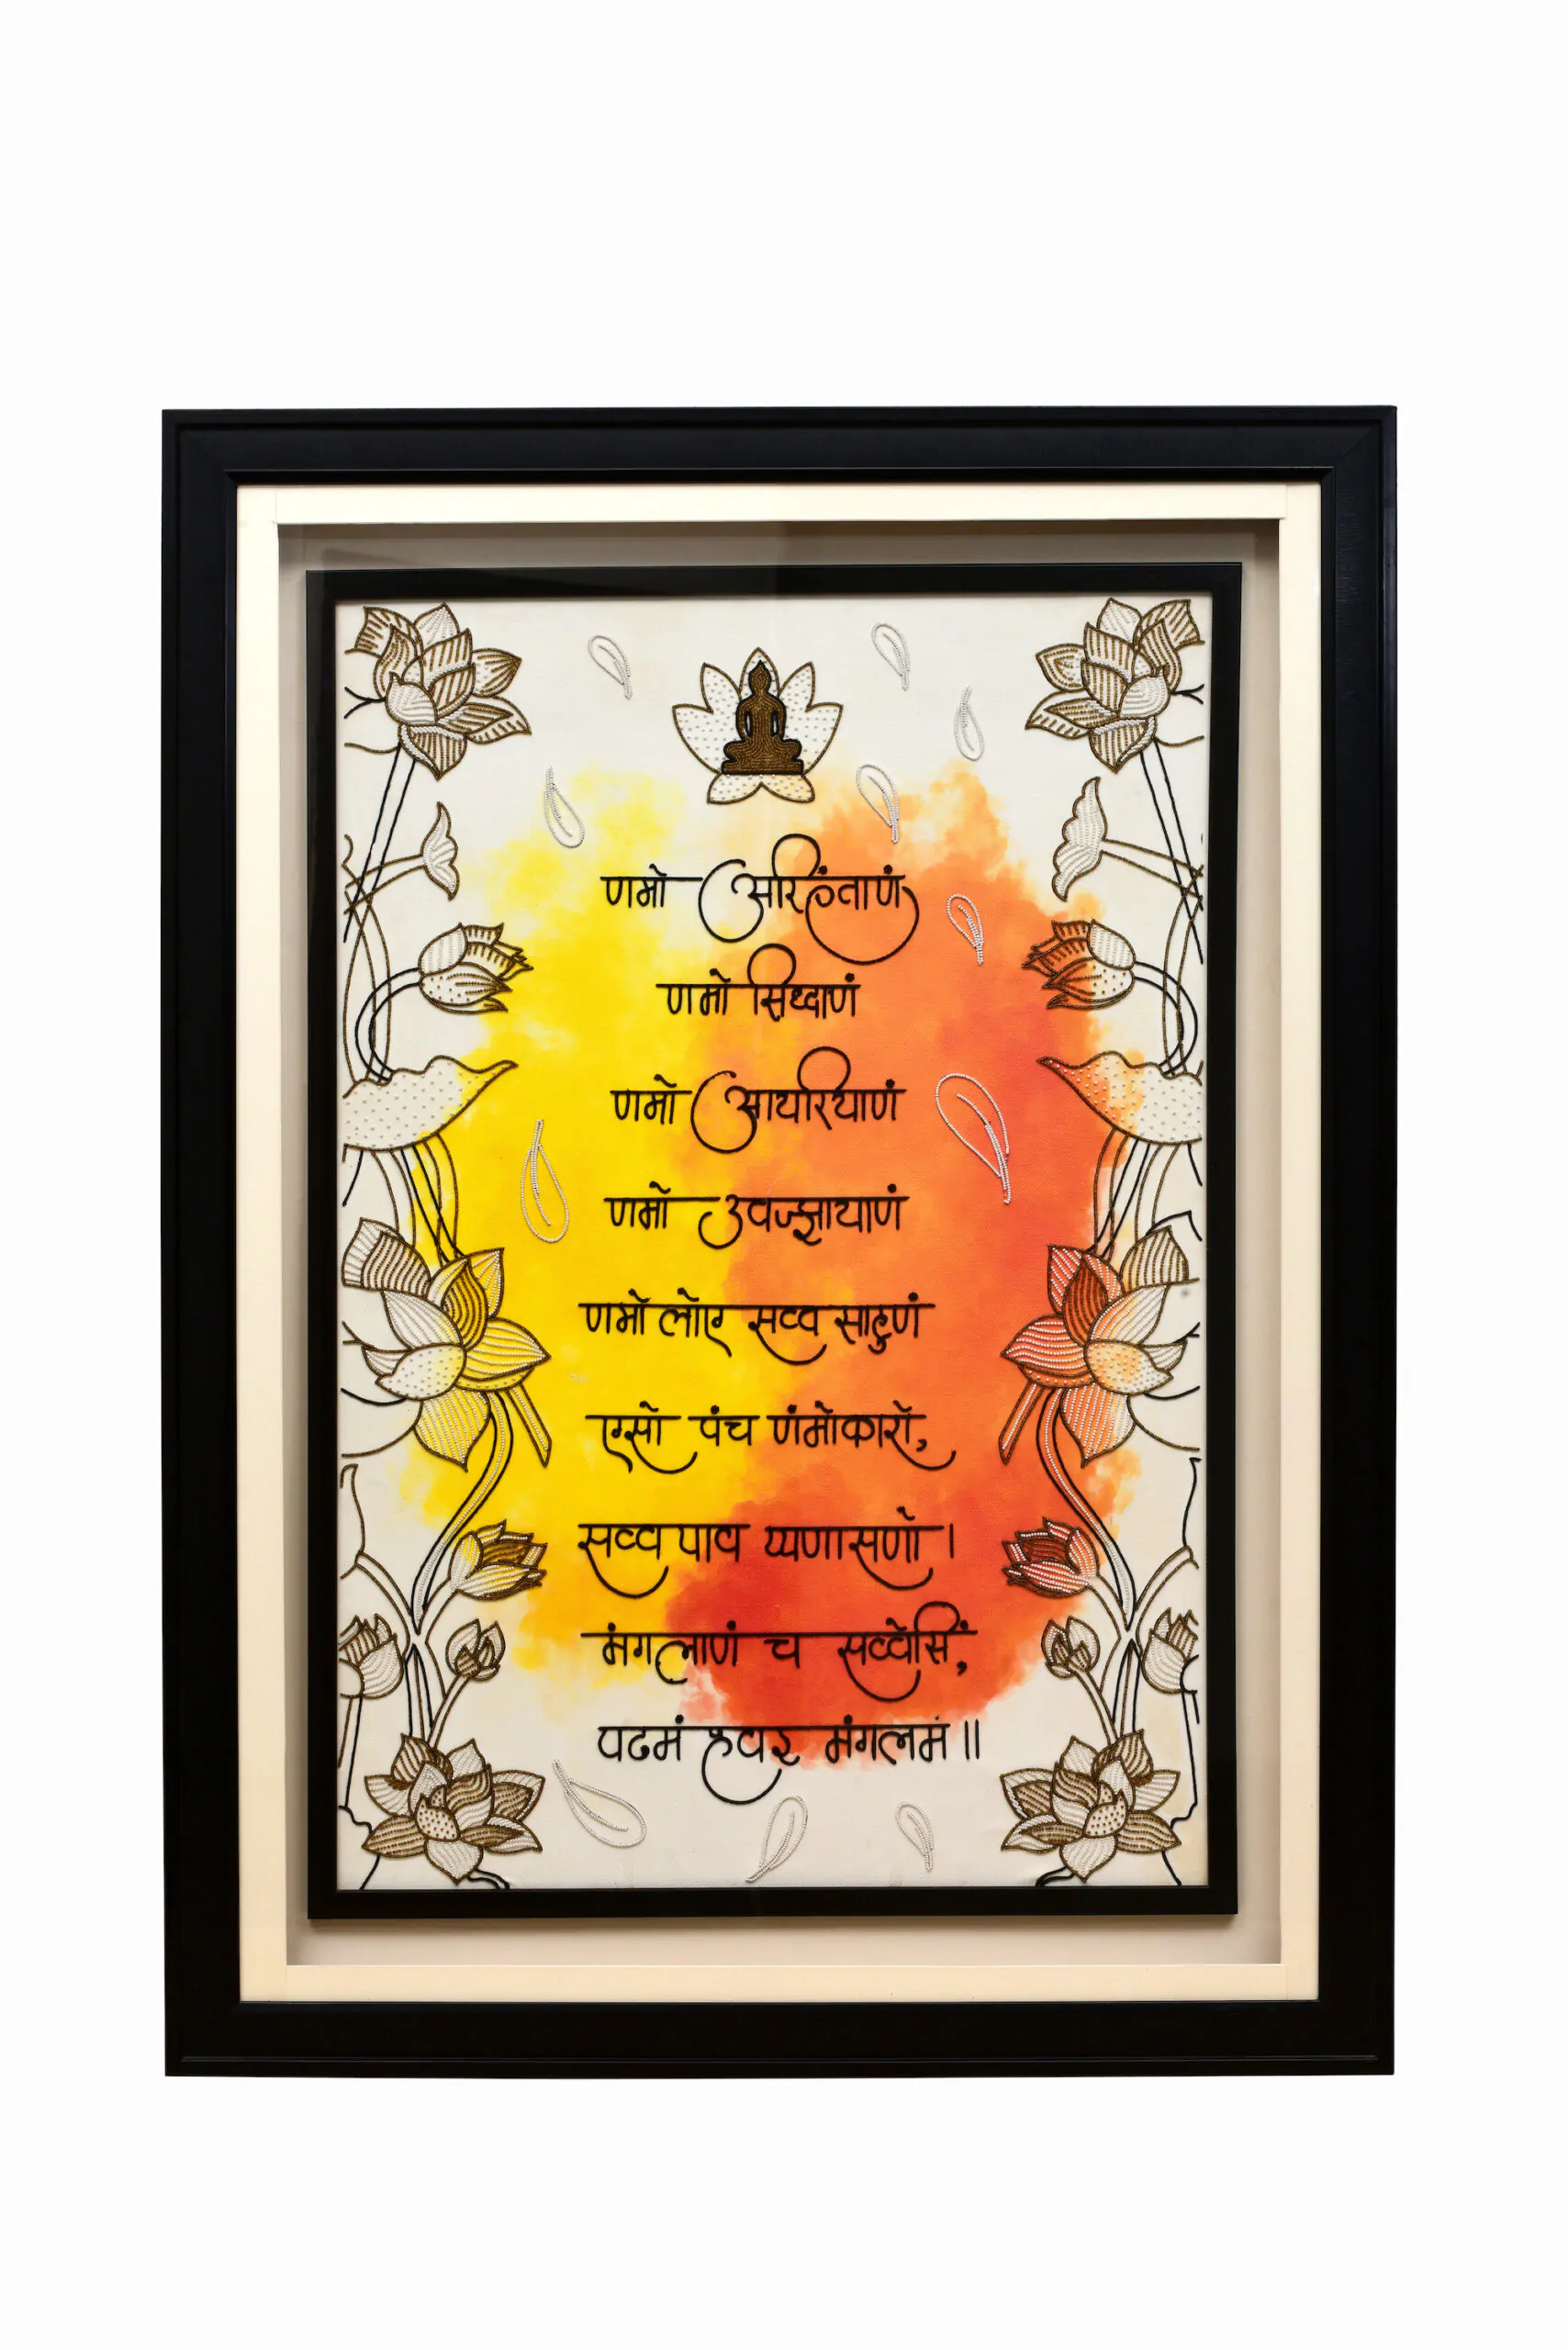 णमो अरिहंताणं
णमो सिध्दाणं
णमो आयरियाणं
णमो उवज्झायाणं
णमो लोए सव्व साहूणं
एसो पंच णंमोकारो,
सव्व पाव प्पणासणो ।
मंगलाणं च सव्वेसिं,
पढमं हवइ मंगलमं ॥